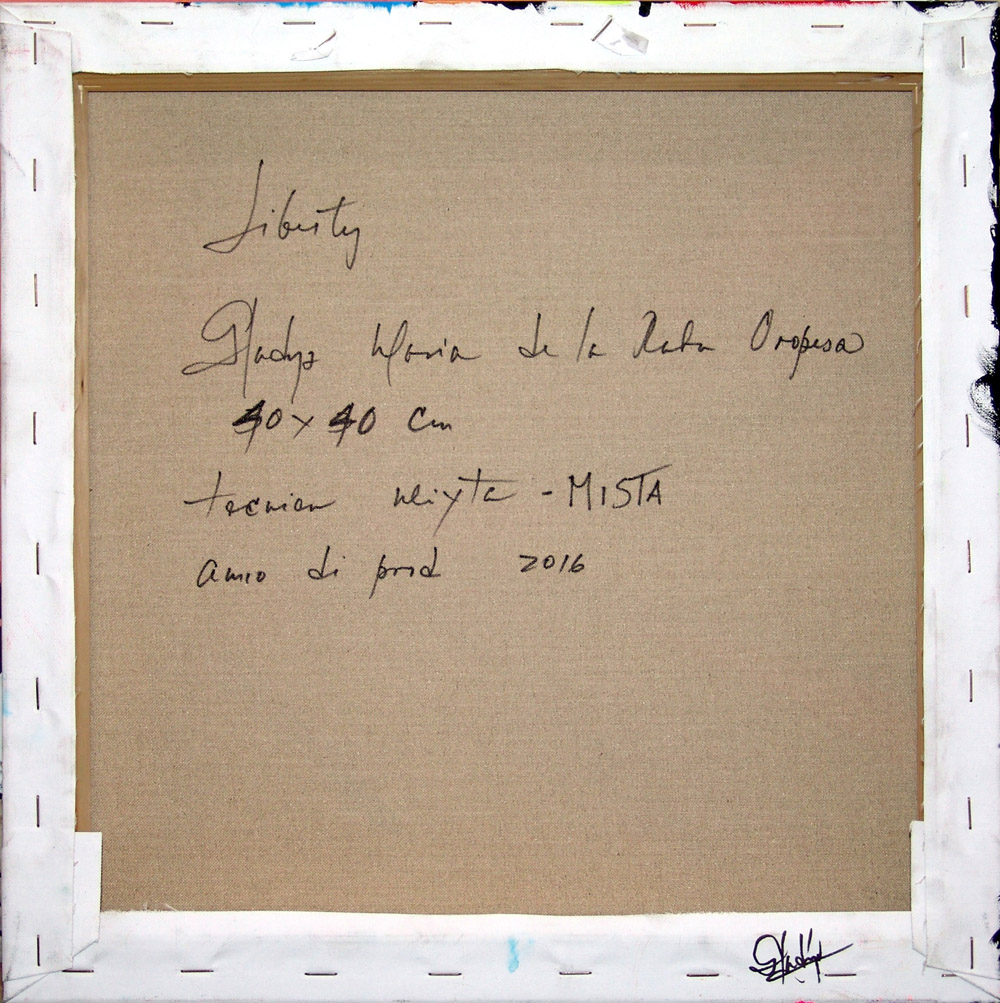 Liberty
Gladys Maria de la Rada Oropesa
40 x 40 cm
tecnica mixta - MISTA
anno di prod 2016
Gladys